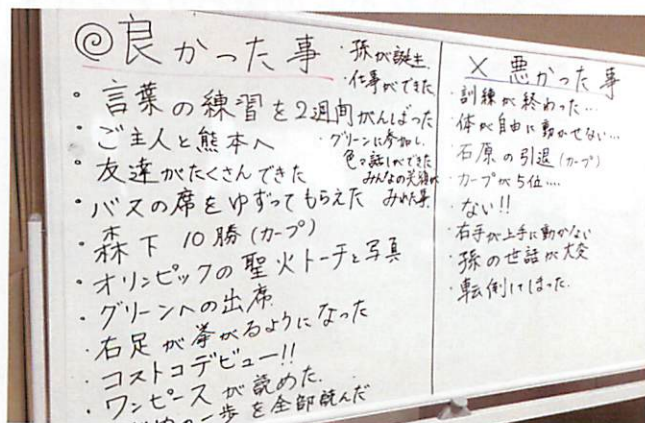 ◎良かった事
・言葉の練習を2週間がんばった
・ご主人と熊本へ
・友達がたくさんできた
・バスの席をゆずってもらえた
・森下 10勝(カープ)
・オリンピックの聖火トーチと写真
・グリーンへの出席
・右足が挙がるようになった
・コストコデビュー!!
・ワンピースが読めた.
の一歩を全部読んだ
・孫が誕生
・仕事ができた
・グリーンに参加し、
色々話しができた
みんなの笑顔が
みれた事
× 悪かった事
・訓練が終わった…
・体が自由に動かせない…
・石原の引退(カープ)
・カープが5位....
・ない!!
・右手が上手に動かない
・孫の世話が大変
・転倒してしまった.